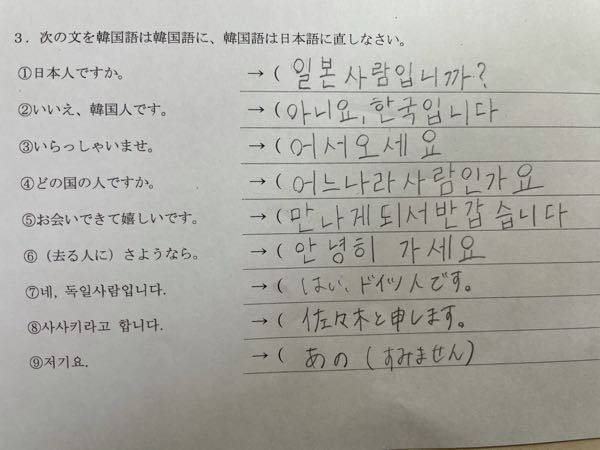 3．次の文を韓国語は韓国語に、韓国語は日本語に直しなさい。
①日本人ですか。 →（ 일본사람입니까?
②いいえ、韓国人です。 →（ 아니요, 한국입니다
③いらっしゃいませ。 →（ 어서오세요
④どの国の人ですか。 →（ 어느나라사람인가요
⑤お会いできて嬉しいです。 →（ 만나게되서반갑습니다
⑥（去る人に）さようなら。 →（ 안녕히 가세요
⑦네, 독일사람입니다. →（ はい、ドイツ人です。
⑧사사키라고 합니다. →（ 佐々木と申します。
⑨저기요. →（ あの（すみません）